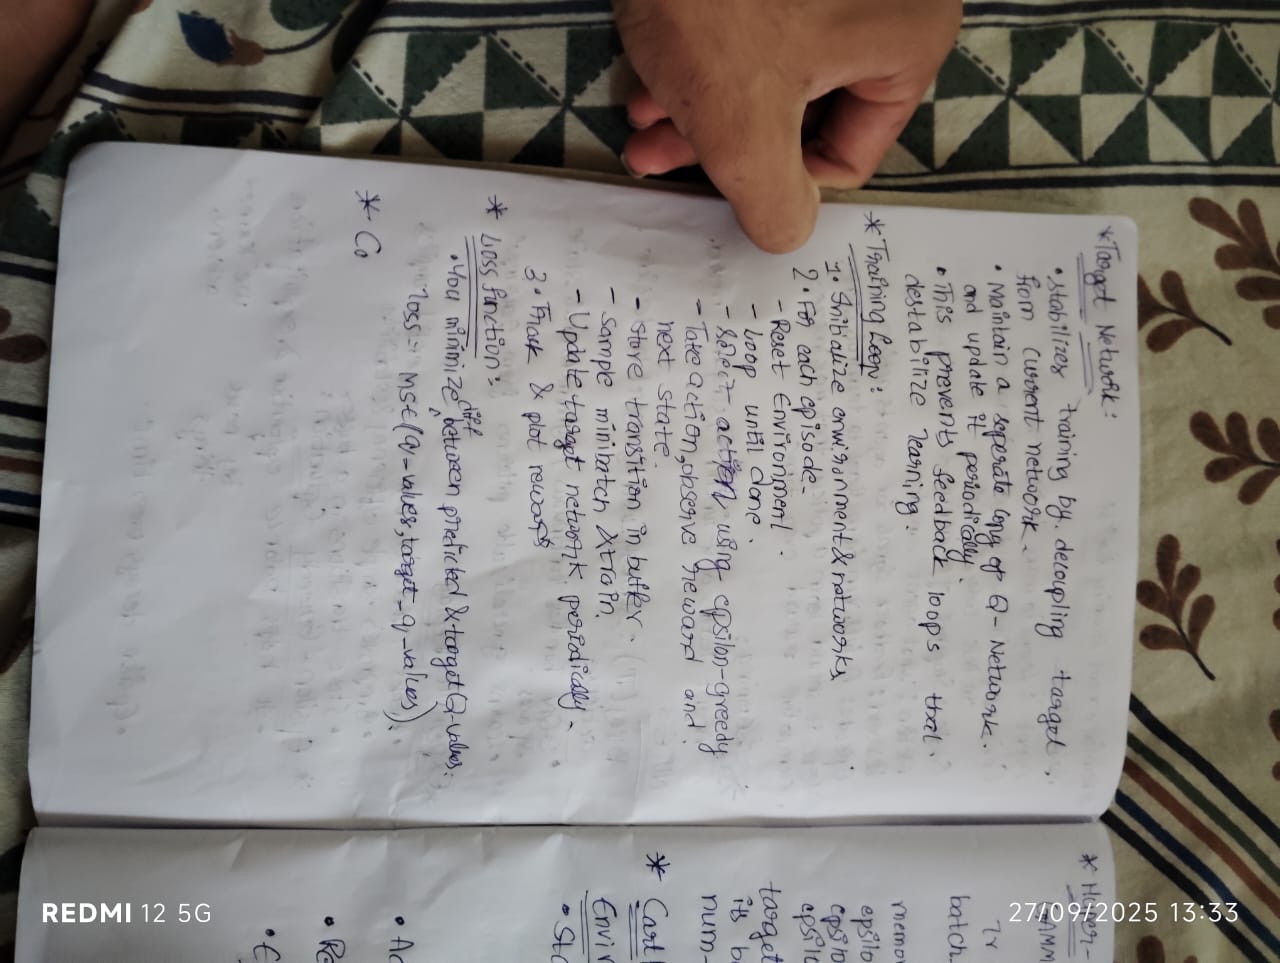 * Target Network:
• stabilizes training by decoupling target
from current network.
• Maintain a seperate copy of Q - Network.
and update it periodically.
• This prevents feedback loops that
destabilize learning.
* Training Loop:
1. Initialize environment & networks
2. For each episode.
- Reset Environment.
- Loop until done.
- Select action using epsilon-greedy
- Take action, observe reward and
next state.
- store transition in buffer.
- Sample minibatch & train.
- Update target network periodically.
3. Track & plot rewards
* Loss function:
• You minimize diff between predicted & target Q-values:
loss = MSE(q-values, target_q-values).
* Co
* Hyper-
GAMM
lr
batch-
memor
epsilo
epsilo
epsilo
target
is b
num-
* Cart
Envir
• Sta
• Ac
• Re
• E
REDMI 12 5G
27/09/2025 13:33